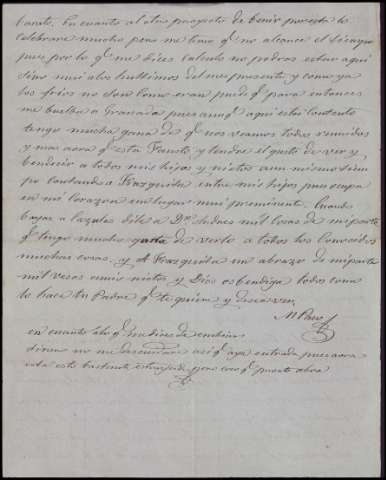 barato. En cuanto al otro proyecto de benir por esto lo
celebrare mucho pero me temo qe no alcance el tiempo
pues por lo qe me dices calculo no podras estar aqui
sino mui alos hultimos del mes presente y como ya
los frios no son como eran puede qe para entonces
me buelba a Granada pues aunqe aqui estoi contento
tengo mucha gana de qe nos veamos todos reunidos
y mas aora qe esta Frascito y tendre el gusto de ver y
bendecir a todos mis hijos y nietos aun mismo tiem
po contando a Frazquita entre mis hijos pues ocupa
en mi corazon un lugar mui preminente. Cuando
bayas a la zubia dile a Dn Andres mil cosas de mi parte
qe tengo mucha gana de verlo a todos los Conocidos
muchas cosas, y A Frazquita un abrazo de mi parte
mil vesos a mis nietos y Dios os bendiga todos como
lo hace tu Padre qe te quiere y desea ver
M Paso
en cuanto alo qe me dices de
diren no me descuidare asi qe aya entrada pues aora
esta esto bastante estropeado y